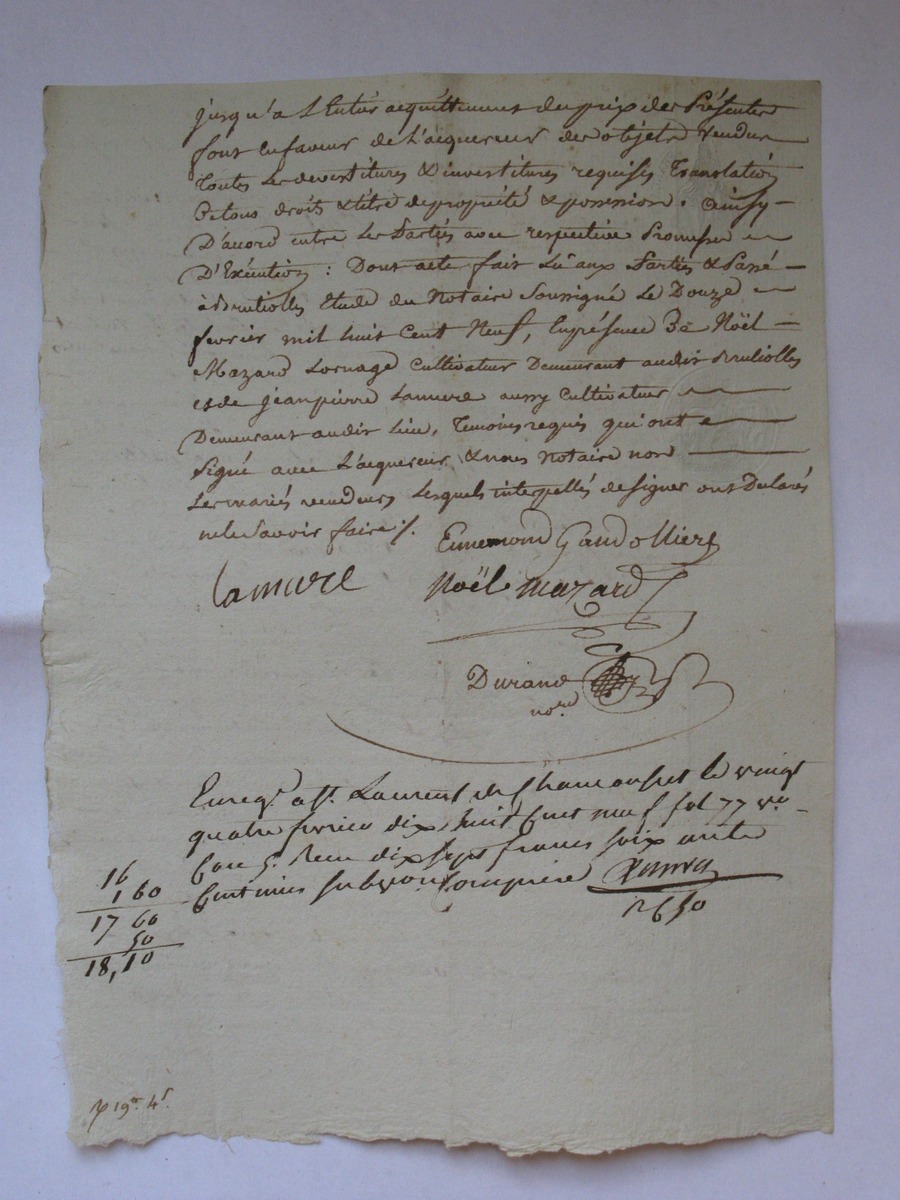 jusqu'a l'entier acquittement du prix des Présentes
font en faveur de L'acquereur des objets vendus
Toutes les devestitures & investitures requises Translation
De tous droits & titre de propriété & possession. Ainsy
D'acord entre les Parties avec respective Promesse
D'Exécution : Dont acte fait Lû aux Parties & Passé
à Brulioles Etude du Notaire Soussigné Le Douze
fevrier mil huit Cent Neuf, En présence De Noël
Mazard Lornage Cultivateur Demeurant audit Bruliolles
et de jean pierre Lamure aussy Cultivateur
Demeurant audit Lieu, Temoins requis qui ont
Signé avec L'acquereur & nous Notaire non
Les mariés vendeurs Lesquels interpellés de signer ont Declarés
ne le Savoir faire ./.
Ennemond Gandolliere
Lamure
Noël Mazard
Durand
no.re
Enreg.é a St. Laurent de Chamousset le vingt
quatre fevrier dix huit Cent neuf fol 77 v.o
Case 5. Recu dix sept francs soixante
Centimes subvon Comprise
2650
16
1 60
17 60
50
18,10
19 4